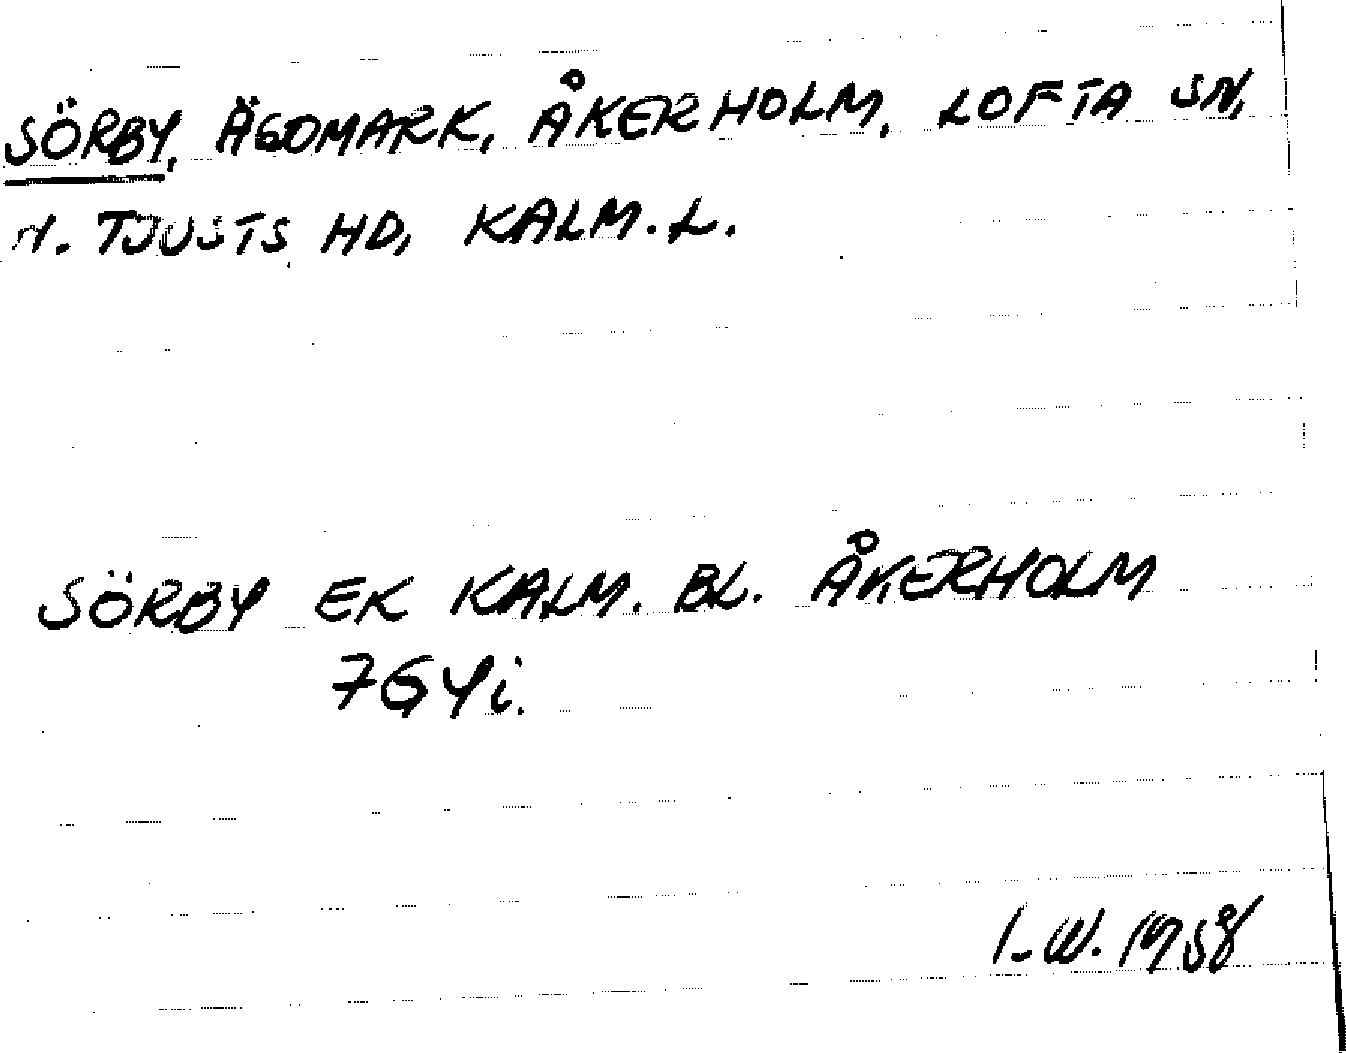 SÖRBY, ÄGOMARK, ÅKERHOLM, LOFTA SN,
N. TJUSTS HD, KALM. L.
SÖRBY EK KALM. BL. ÅKERHOLM
7G4i.
I.W. 1958